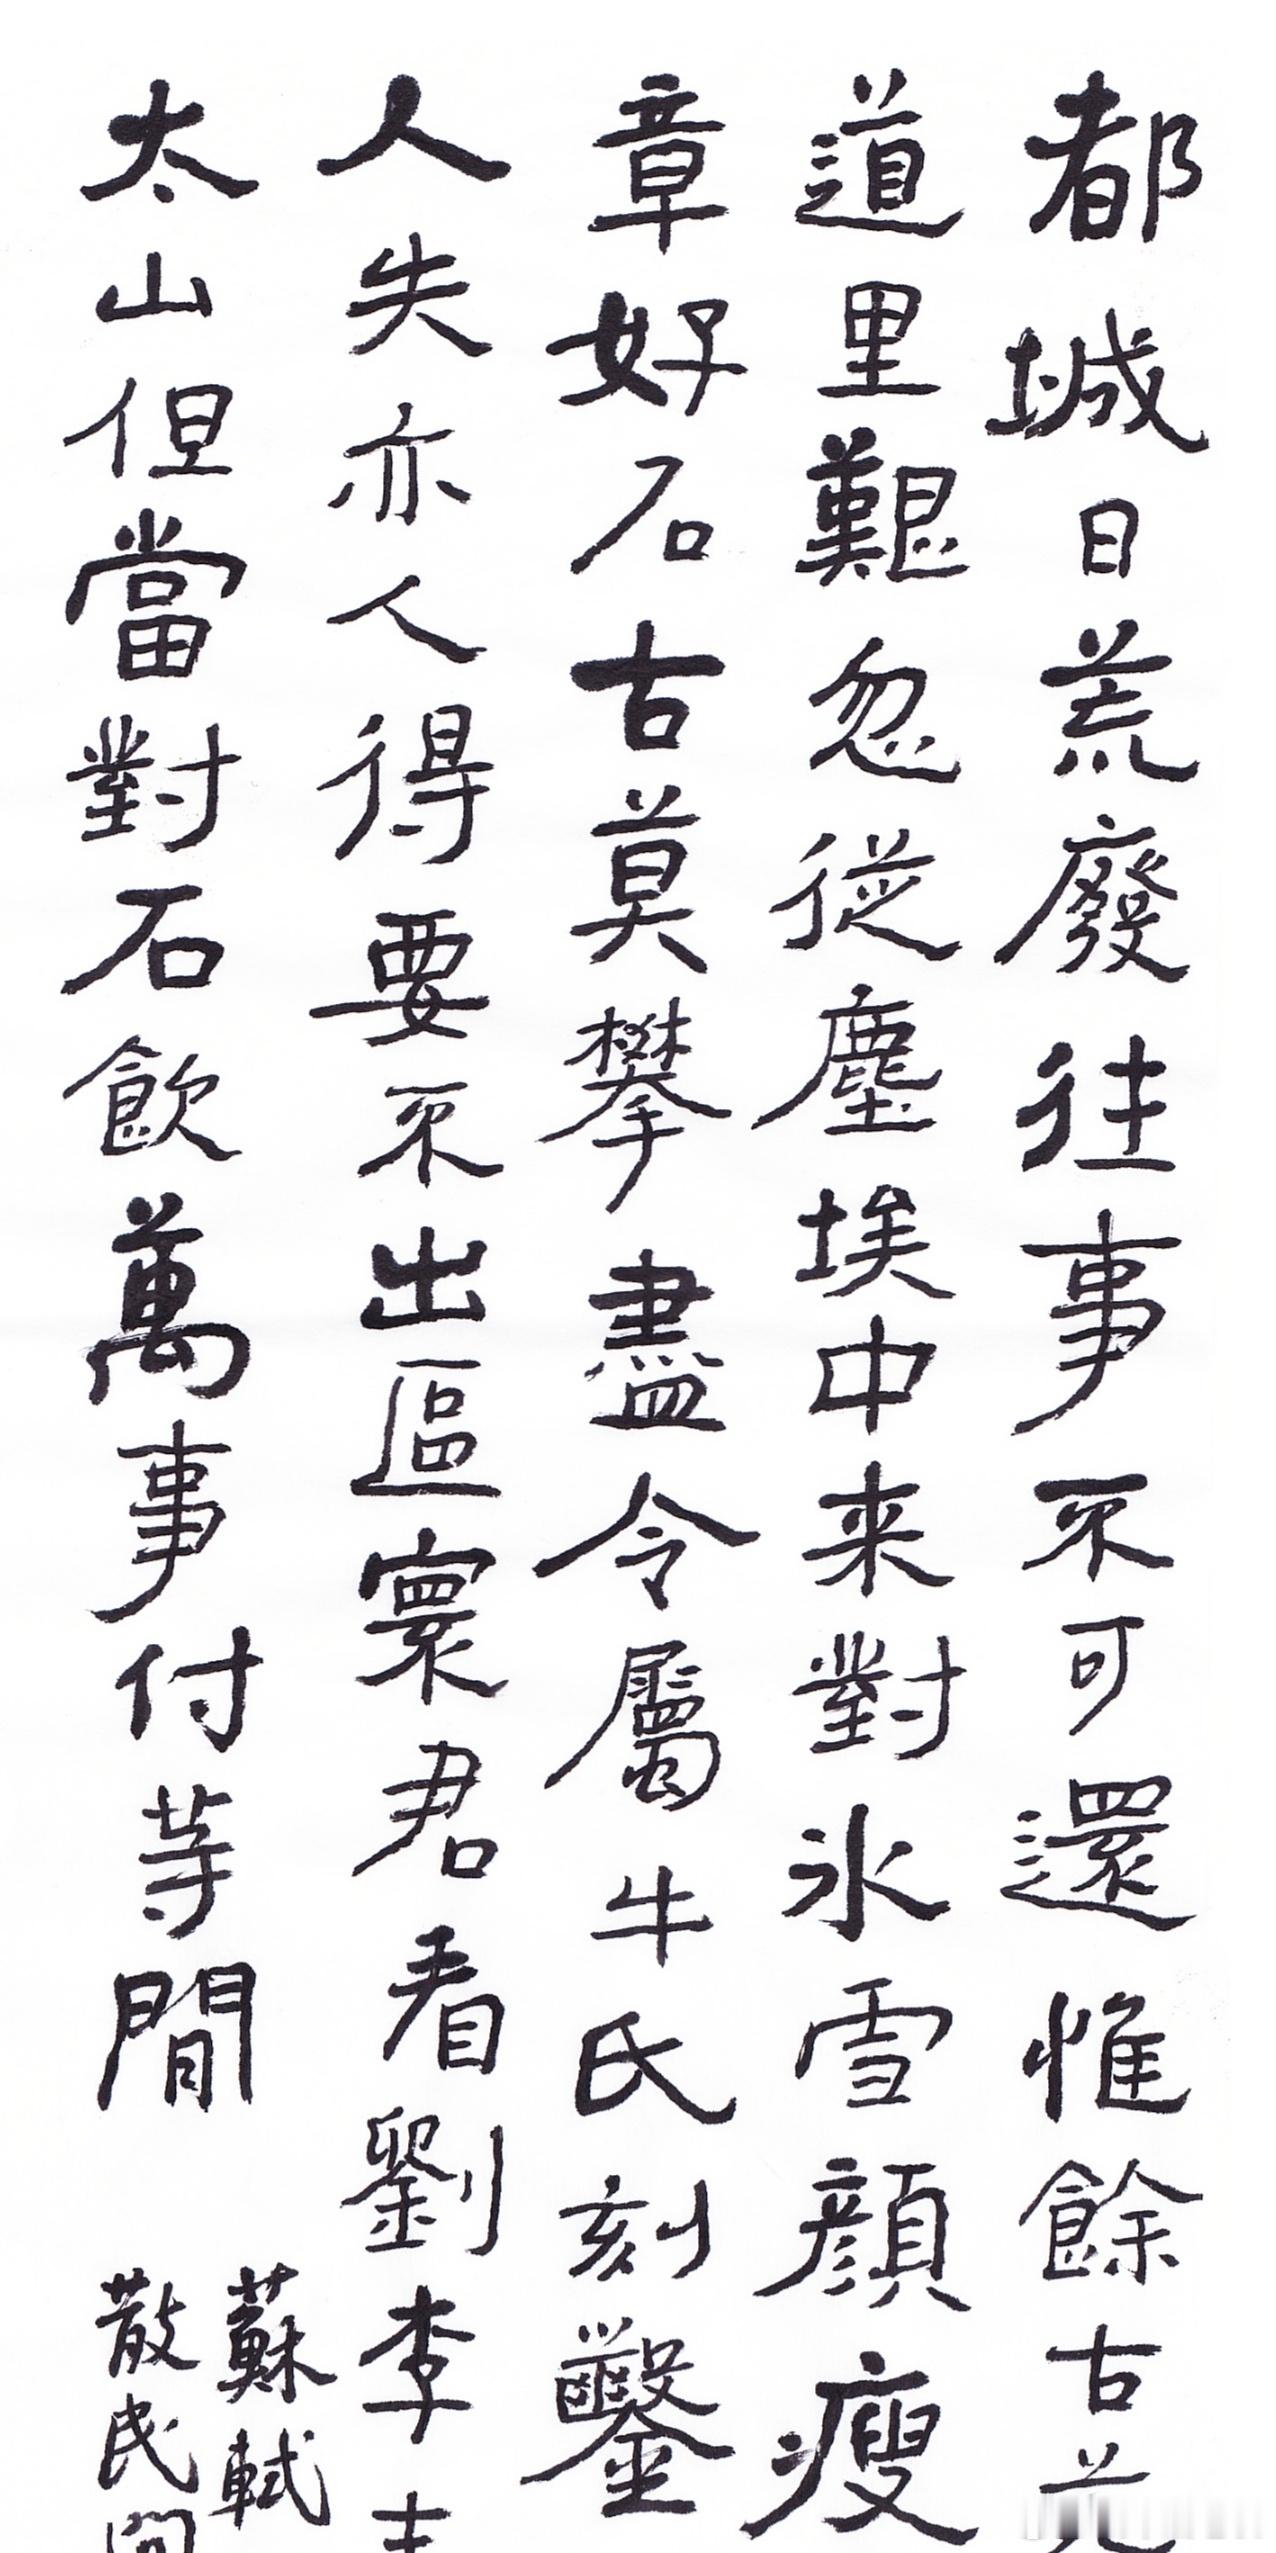 都城日荒廢往事不可還惟餘古
道里艱忽從塵埃中来對氷雪顔瘦
章好石古莫攀盡令屬牛氏刻鑿
人失亦人得要不出區寰君看劉李
太山但當對石飲萬事付等閒
蘇軾
散民